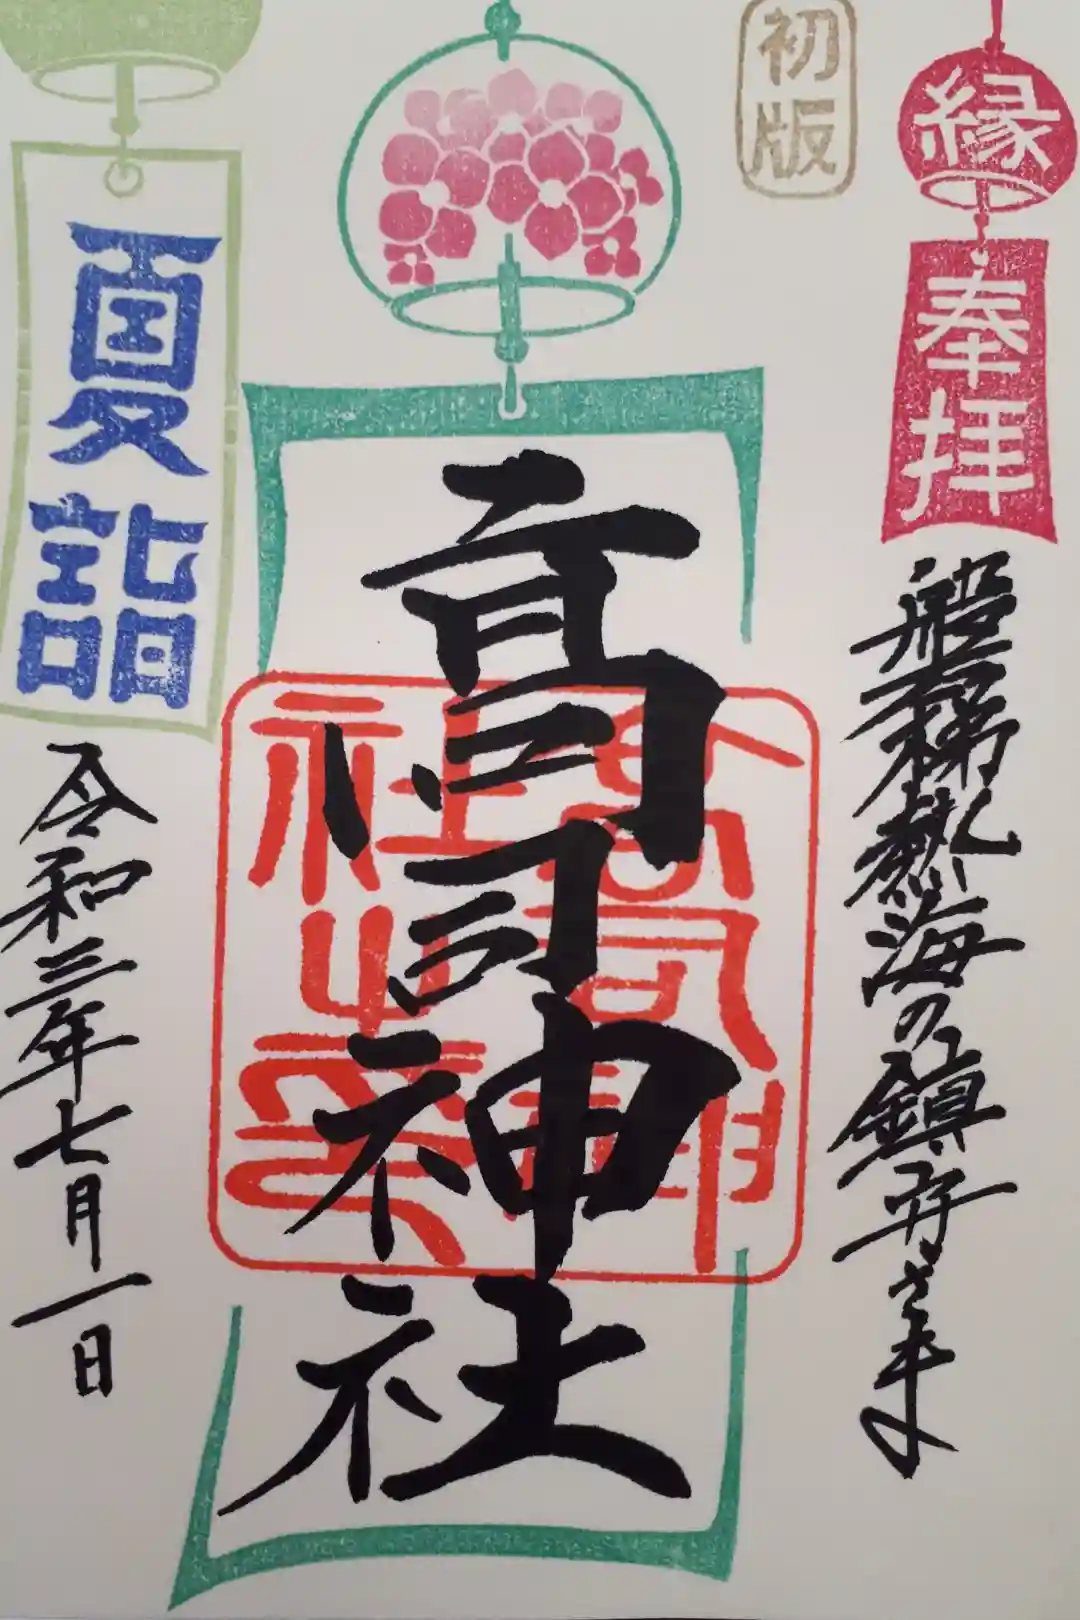 縁
奉拝
磐梯熱海の鎮守さま
初版
高司神社
高司神
社之印
夏詣
令和三年七月一日